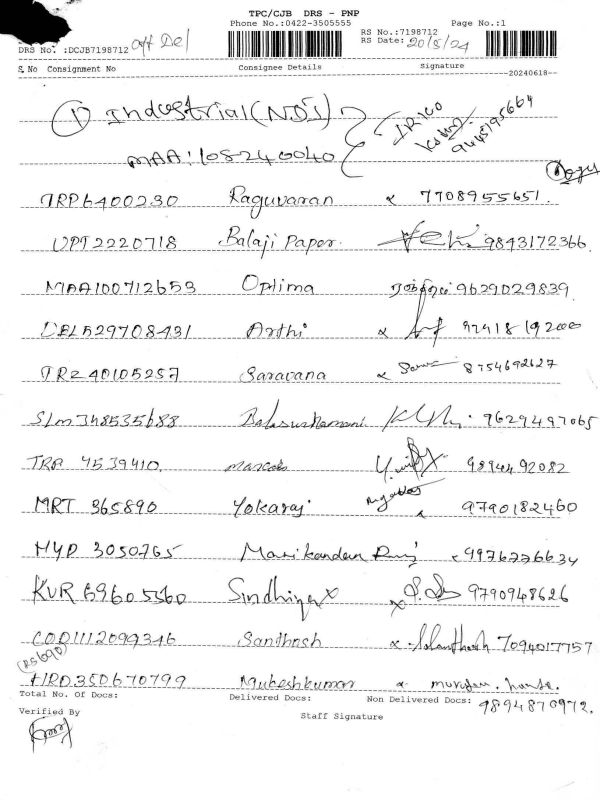 TPC/CJB DRS - PNP
Phone No.:0422-3505555 Page No.:1
RS No.:7198712
DRS No. :DCJB7198712 off Del RS Date: 20/5/24
S.No Consignment No Consignee Details Signature
--20240618--
① Industrial (NDI)
MAA:108240040 9445195664
TRP6400230 Raguvaran 7708955651.
UPT2220718 Balaji Paper. 9843172366
MAA100712653 Optima 9629029839
DEL529708431 Arthi
TRZ40105257 Saravana 8754692627
SLM348535688 9629497065
TRP 4539410 9894492082
MRT 365890 Yokaraj 9790182460
HYD 3050765 Manikandan 9976776634
KVR 69605560 Sindhiya 9790948626
COD1112099346 Santhosh 7094017757
(RS690)
HRD350670799 Mukeshkumar
Total No. Of Docs: Delivered Docs: Non Delivered Docs: 9894870972.
Verified By Staff Signature